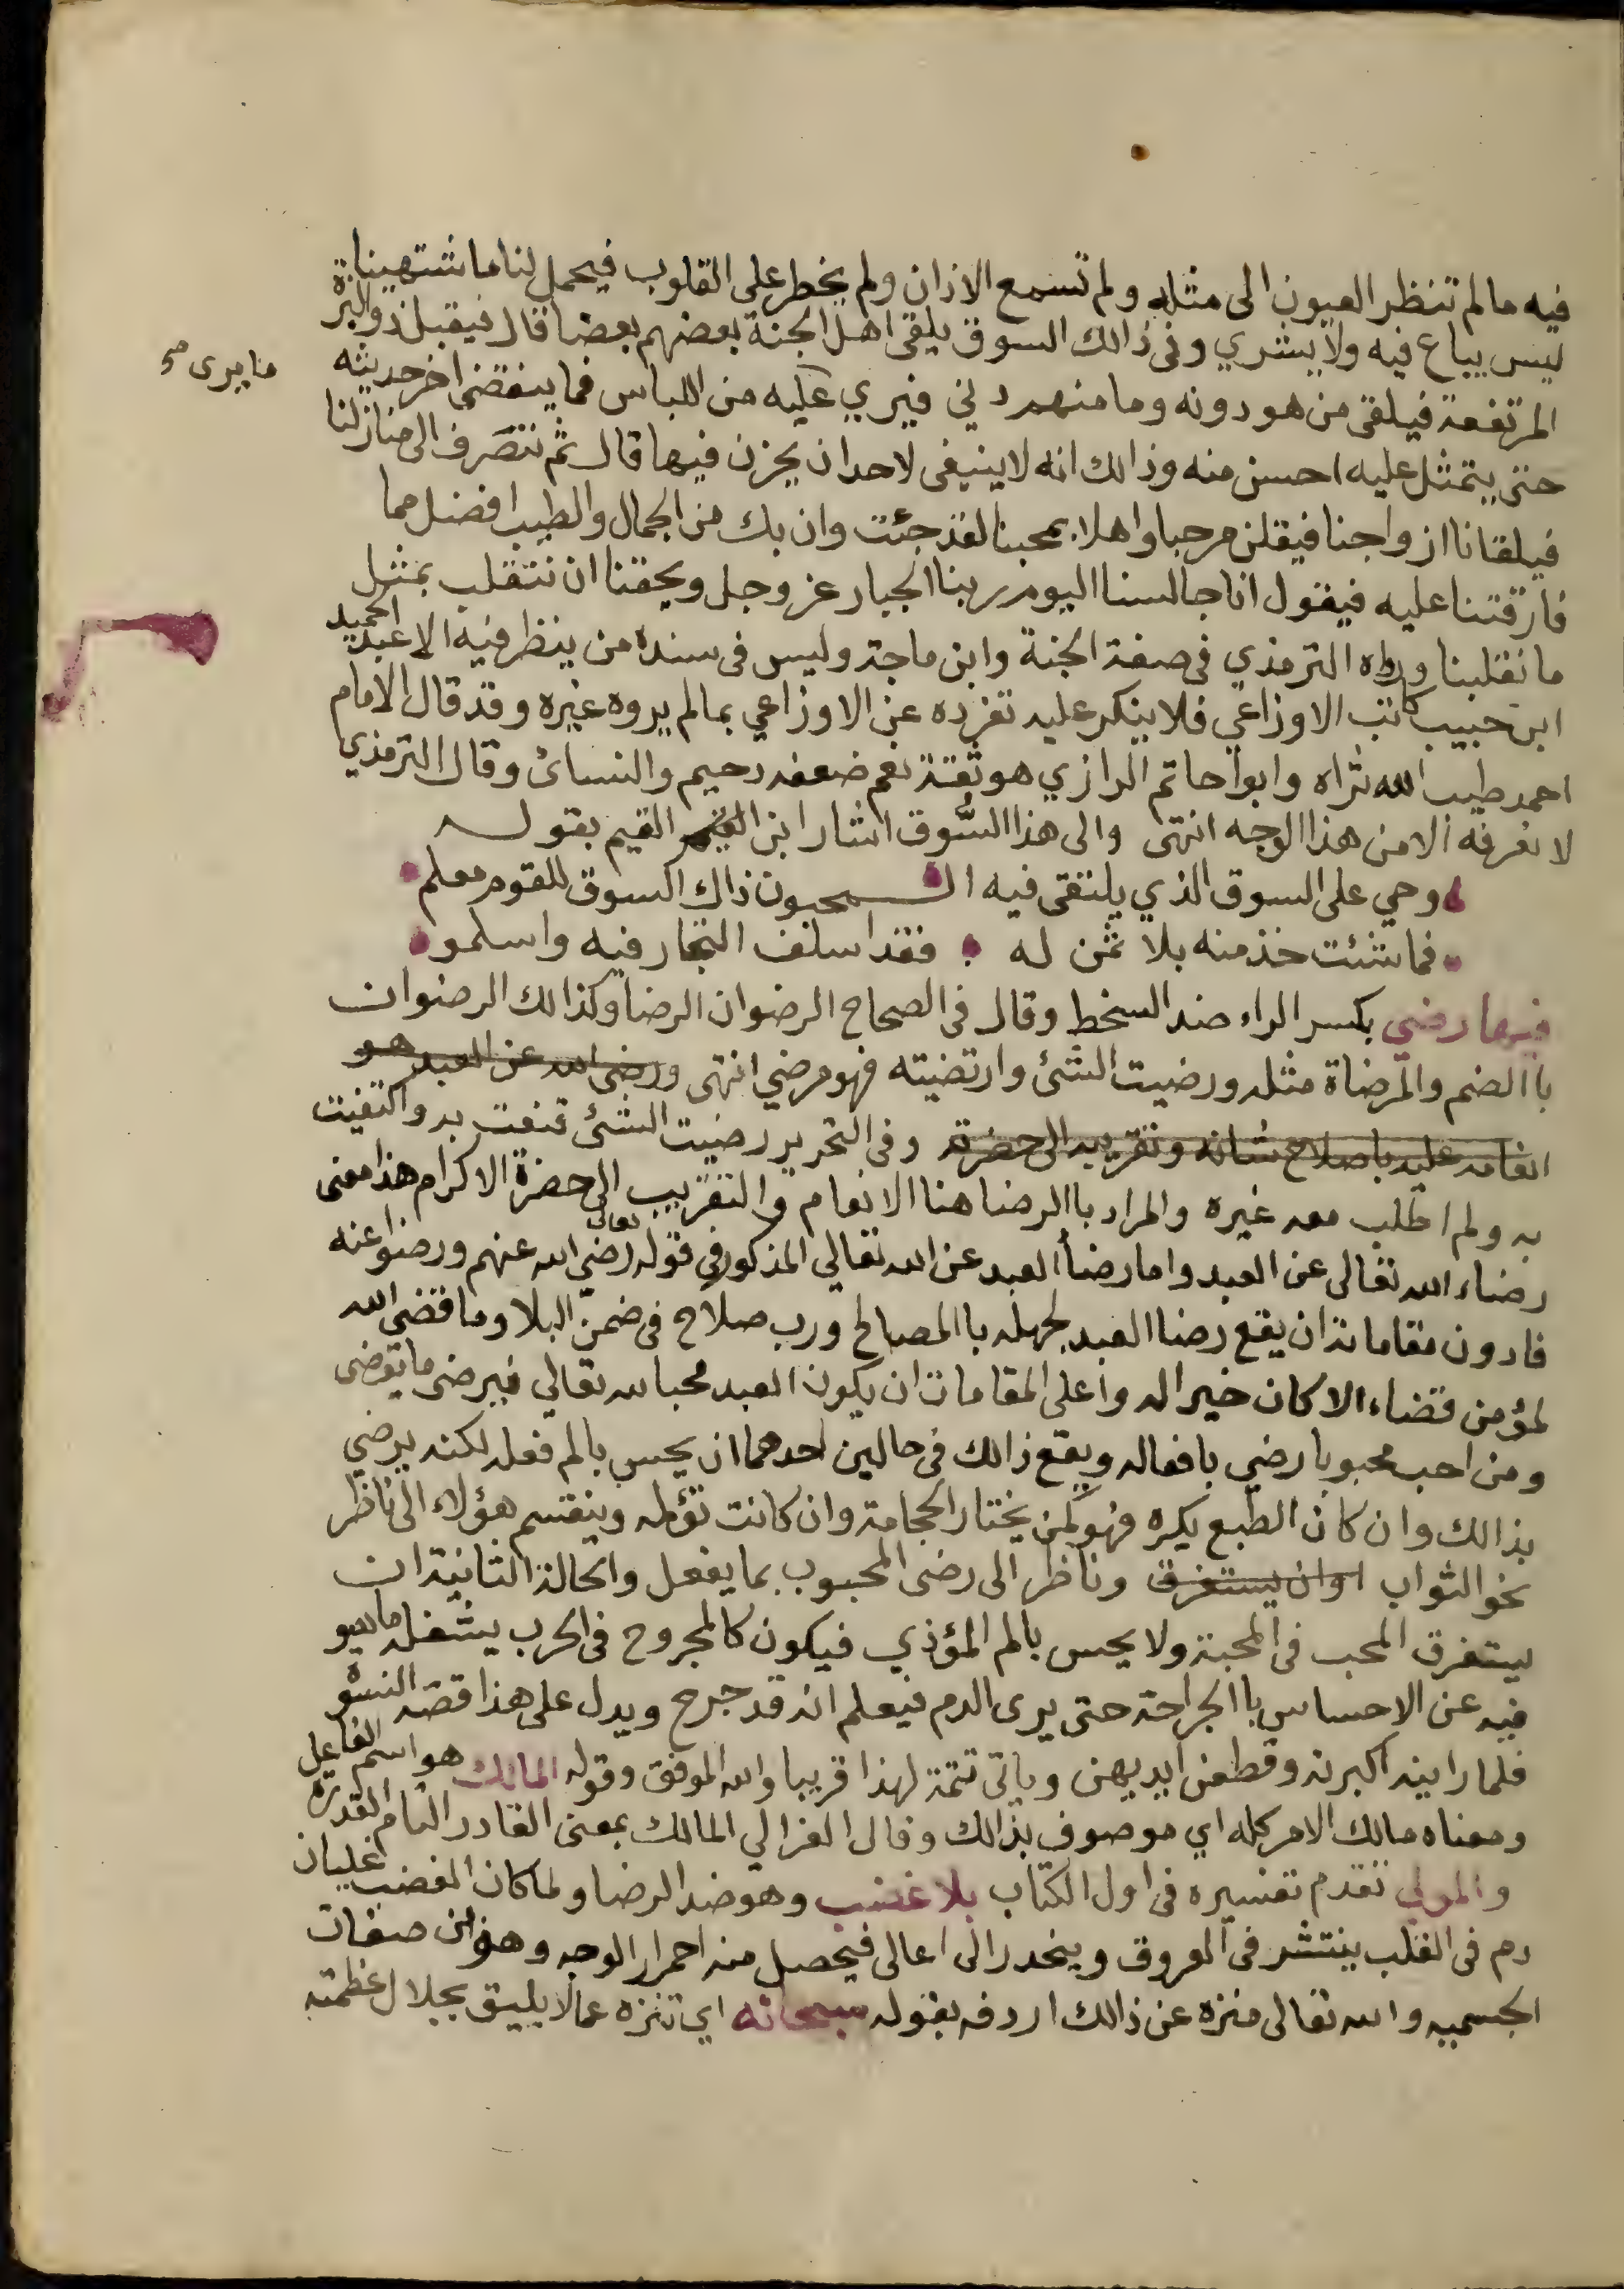 فيه مالم تنظر العيون الى مثله ولم تسمع الاذان ولم يخطر على القلوب فيحمل لنا ما شتهينا
ليس يباع فيه ولا يشري وفي ذالك السوق يلقى اهل الجنة بعضهم بعضا قال فيقبل ذو البزة
المرتفعة فيلقى من هو دونه وما منهم دني فيري عليه من اللباس فما ينقضي اخر حديثه
ما يرى صح
حتى يتمثل عليه احسن منه وذالك انه لا ينبغى لاحد ان يحزن فيها قال ثم نتصرف الى منازلنا
فيلقانا ازواجنا فيقلن مرحبا واهلا بمحبنا لقد جئت وان بك من الجمال والطيب افضل مما
فارقتنا عليه فيقول انا جالسنا اليوم ربنا الجبار عز وجل ويحقنا ان نتقلب بمثل
ما نقلبنا ورواه الترمذي في صفة الجنة وابن ماجة وليس في سنده من ينظر فيه الا عبد الحميد
ابن حبيب كاتب الاوزاعي فلا ينكر عليه تفرده عن الاوزاعي بمالم يروه غيره وقد قال الامام
احمد طيب الله ثراه وابوا حاتم الرازي هو ثقة نعم ضعفه دحيم والنسائ وقال الترمذي
لا نعرفه الا من هذا الوجه انتهى والى هذا السُّوق اشار ابن القيم بقوله
وحي على السوق الذي يلتقى فيه المحبون ذاك السوق للقوم معلم
فما شئت خذ منه بلا ثمن له فقد اسلف التجار فيه واسلموا
فيها رضي بكسر الراء ضد السخط وقال في الصحاح الرضوان الرضا وكذالك الرضوان
باالضم والمرضاة مثله ورضيت الشئ وارتضيته فهو مرضي انتهى ورضى الله عن العبد هو
انعامه عليه باصلاح شانه وتقريبه الى حضرته وفي التحرير رضيت الشئ قنعت به واكتفيت
به ولم اطلب معه غيره والمراد باالرضا هنا الانعام والتقريب الى حضرة الاكرام هذا معنى
رضاء الله تعالى عن العبد واما رضأ العبد عن الله تعالي المذكور في قوله تعالى رضي الله عنهم ورضوا عنه
فادون مقاماته ان يقع رضا العبد لجهله باالمصالح ورب صلاح في ضمن البلا وما قضى الله
لمؤمن قضاء الا كان خيرا له واعلى المقامات ان يكون العبد محبا لله تعالي فيرضى ما يقضى
ومن احب محبوبا رضي بافعاله ويقع ذالك في حالين احدهما ان يحس بالم فعله لكنه يرضي
بذالك وان كان الطبع يكره فهو كمن يختار الحجامة وان كانت تؤلمه وينقسم هؤلاء الى ناظر
نحو الثواب او ان يستغرق وناظر الى رضى المحبوب بما يفعل والحالة الثانية ان
يستغرق المحب في المحبة ولا يحس بالم المؤذي فيكون كالمجروح في الحرب يشغله ما هو
فيه عن الاحساس باالجراحة حتى يرى الدم فيعلم انه قد جرح ويدل على هذا قصة النسوة
فلما راينه اكبرنه وقطعن ايديهن وياتى تتمة لهذا قريبا والله الموفق وقوله المالك هو اسم الفاعل
ومعناه مالك الامر كله اي موصوف بذالك وقال الغزالي المالك بمعنى القادر التام القدرة
والمولي تقدم تفسيره في اول الكتاب بلا غضب وهو ضد الرضا ولما كان الغضب غليان
دم في القلب ينتشر في العروق وينحدر الى اعالى فيحصل منه احمرار الوجه وهو من صفات
الجسميه والله تعالى منزه عن ذالك اردفه بقوله سبحانه اي تنزه عمالا يليق بجلال عظمته